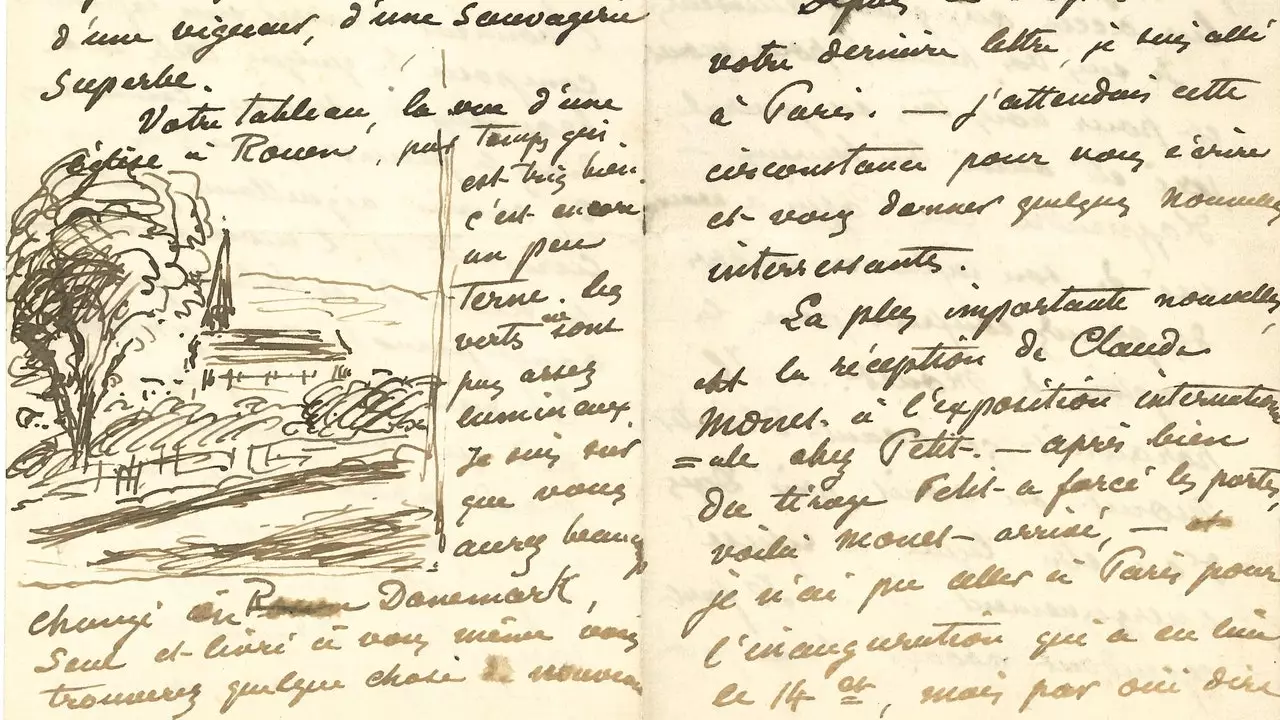 d'une vigueur, d'une Sauvagerie
Superbe.
Votre tableau, la vue d'une
église à Rouen, par temps gris
est très bien.
c'est encore
un peu
terne. les
verts ne sont
pas assez
lumineux
Je suis sûr
que vous
aurez beaucoup
changé en Danemark,
Seul et livré à vous même vous
trouverez quelque chose de nouveau
Depuis
votre dernière lettre, je suis allé
à Paris. — j'attendais cette
circonstance pour vous écrire
et vous donner quelques nouvelles
interressantes.
La plus importante nouvelle,
est la réception de Claude
Monet à l'exposition internation
=ale chez Petit. — après bien
du tirage Petit a forcé les portes,
voilà Monet arrivé, —
je n'ai pu aller à Paris pour
l'inauguration qui a eu lieu
le 14 et, mais par ouï dire